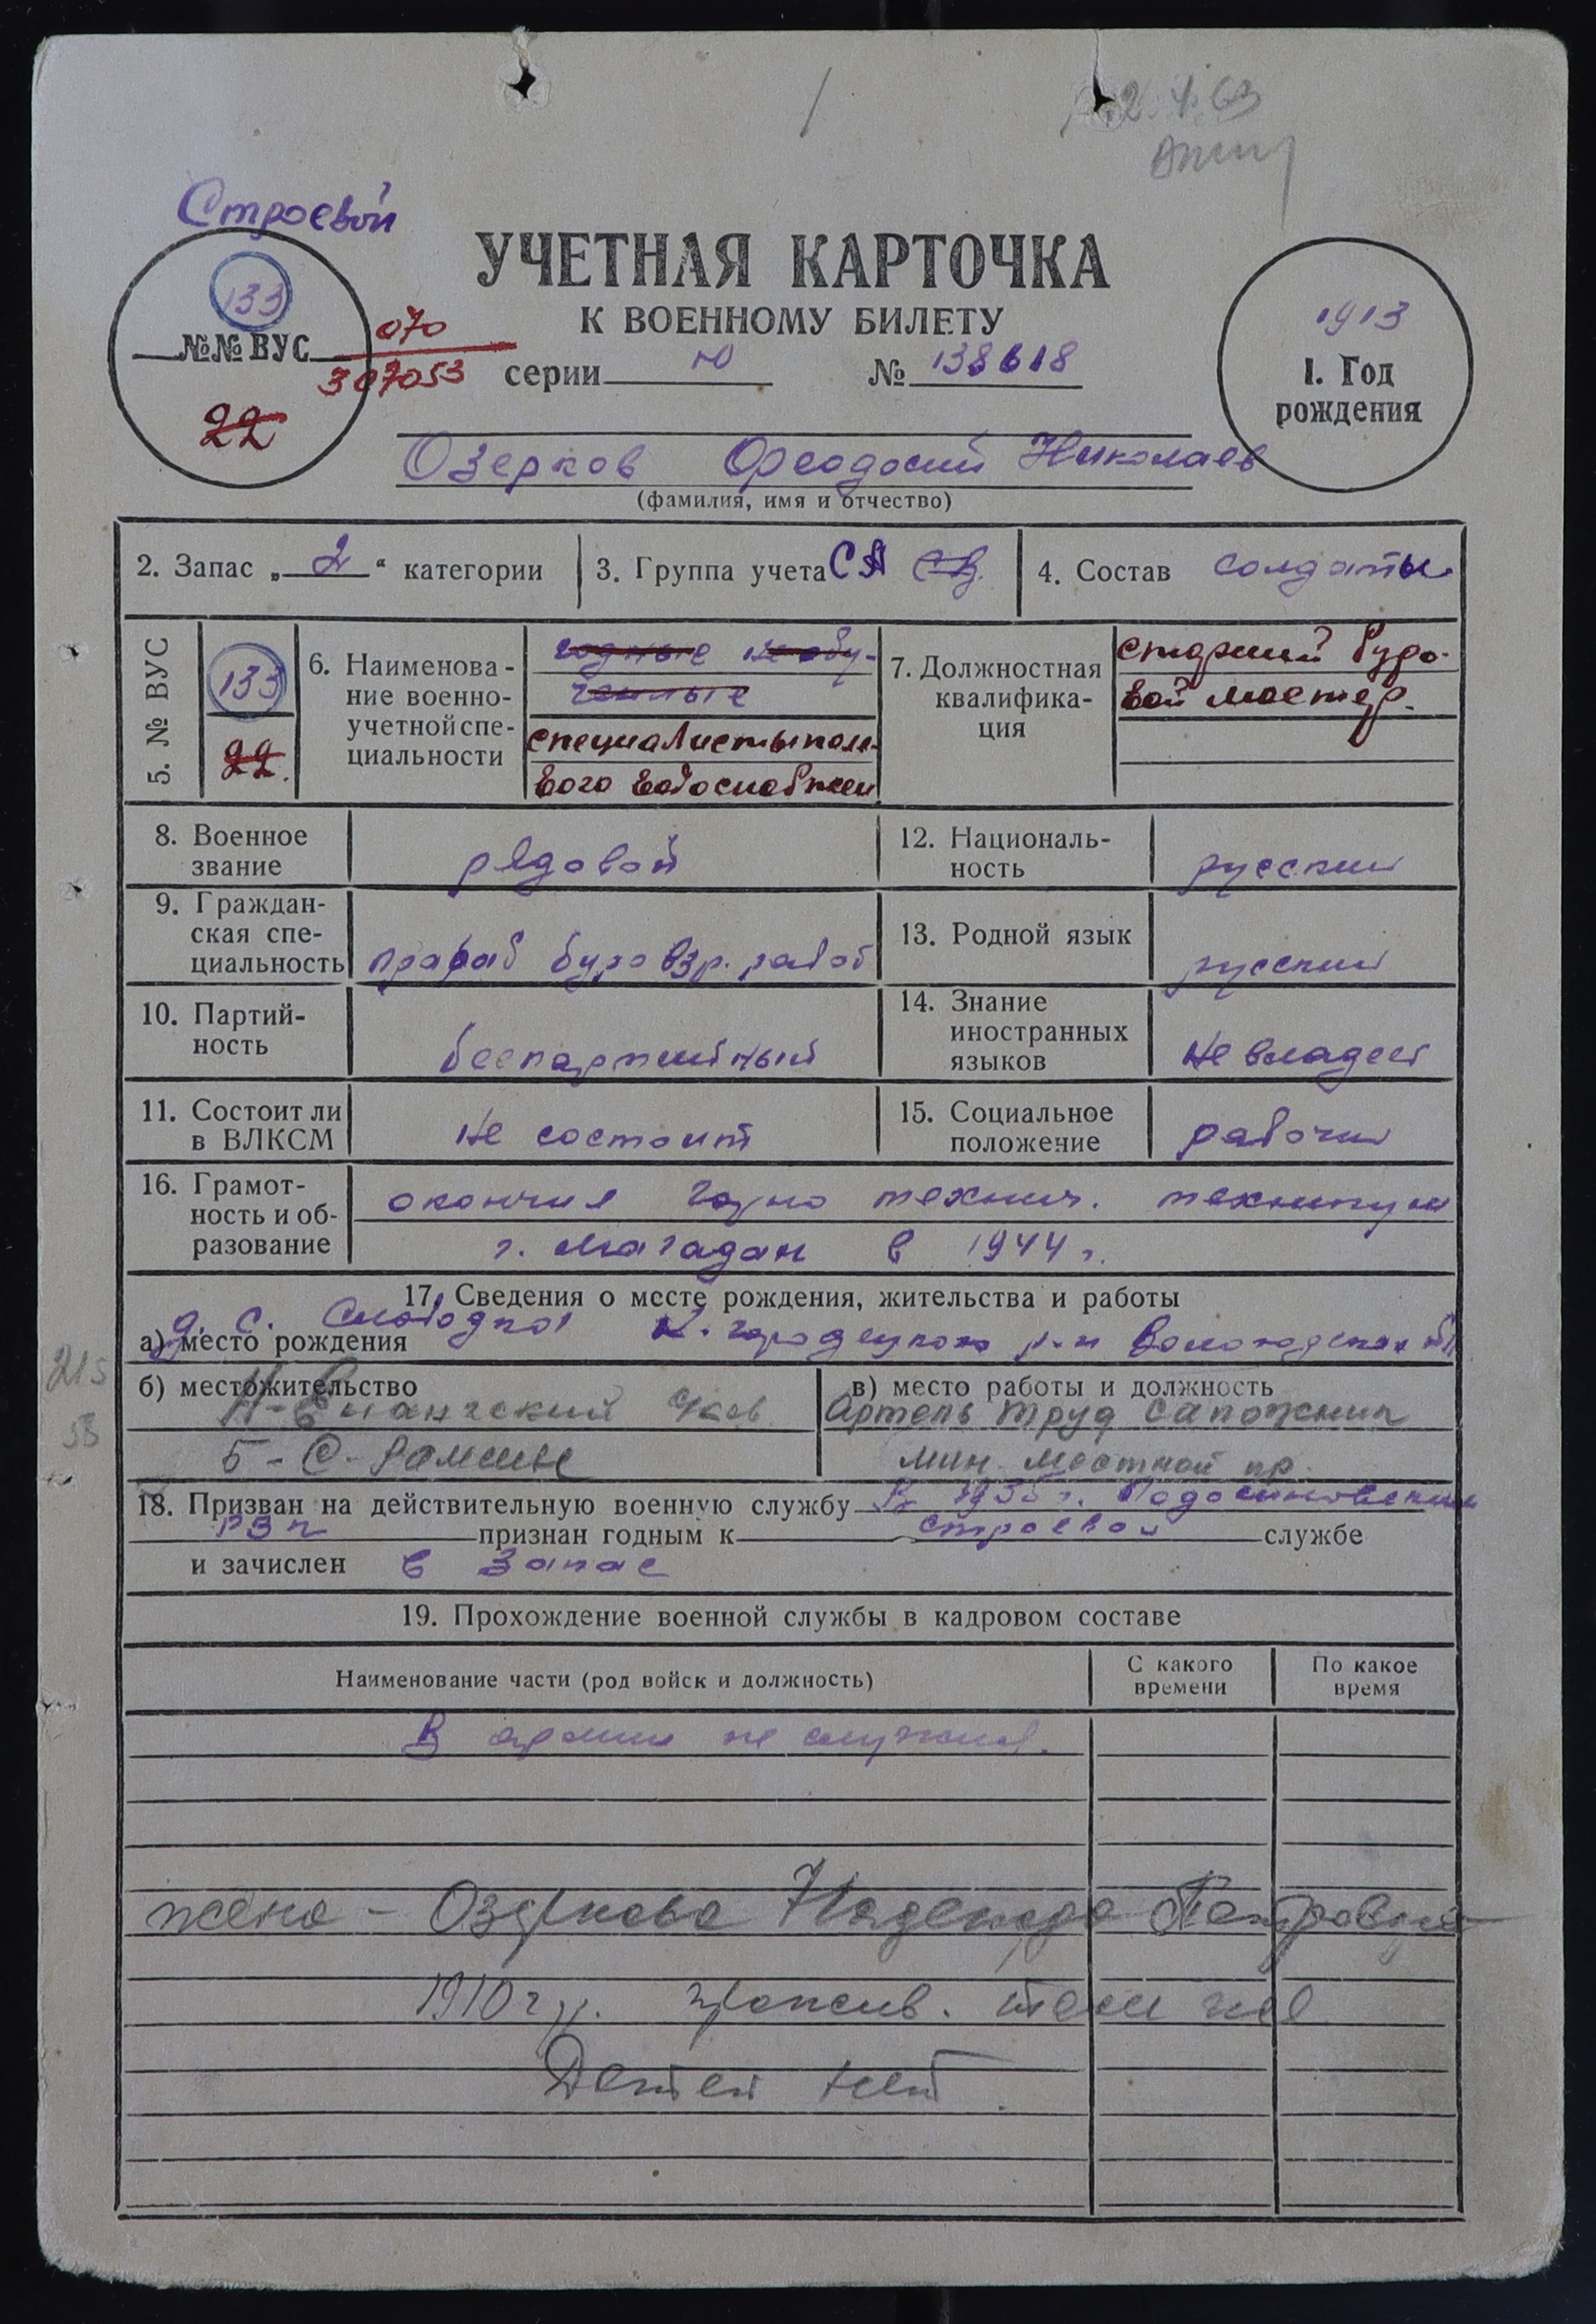 2.4.63
Строевой
УЧЕТНАЯ КАРТОЧКА
К ВОЕННОМУ БИЛЕТУ
133
№№ ВУС
070
307053
22
серии Ю № 138618
1913
1. Год
рождения
Озерков Феодосий Николаев
(фамилия, имя и отчество)
2. Запас „2“ категории
3. Группа учета СА СВ.
4. Состав солдаты
5. № ВУС
133
22.
6. Наименова-
ние военно-
учетной спе-
циальности
годные необу-
ченные
специалисты поле-
вого водоснабжен
7. Должностная
квалифика-
ция
старший буро-
вой мастер.
8. Военное
звание
рядовой
12. Националь-
ность
русский
9. Граждан-
ская спе-
циальность
прораб буро взр. работ
13. Родной язык
русский
10. Партий-
ность
беспартийный
14. Знание
иностранных
языков
не владеет
11. Состоит ли
в ВЛКСМ
не состоит
15. Социальное
положение
рабочий
16. Грамот-
ность и об-
разование
окончил горно технич. техникум
г. Магадан в 1944 г.
17. Сведения о месте рождения, жительства и работы
а) место рождения
д. Слободка К. Городецкого р-н Вологодская обл
б) местожительство
5-
в) место работы и должность
Артель Труд сапожник
мин. местной пр.
215
18. Призван на действительную военную службу В 1935 г. Подосиновским
РВК признан годным к строевой службе
и зачислен в запас
19. Прохождение военной службы в кадровом составе
Наименование части (род войск и должность)
С какого
времени
По какое
время
В армии не служил.
жена - Озеркова Надежда Петровна
1910 г р. прожив. там же
Детей нет.